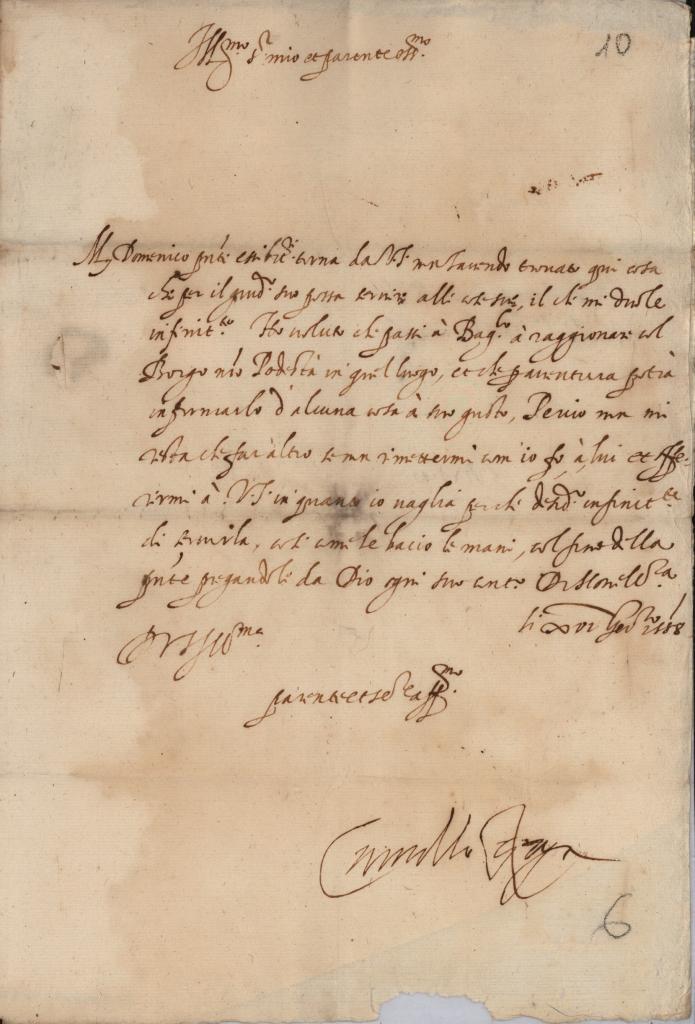 Ill.mo s.r mio et parente oss.mo
10
M. Domenico pn'te torna da V.S. non havendo trovato qui cosa
che per il suo possa servire alle cose sue, il che mi duole
infinit.te Ho voluto che passi à Bag.lo à raggionare col
Borgo n'ro Podestà in quel luogo, et che potrà
informarlo d'alcuna cosa à suo gusto, Perciò non mi
resta che far altro se non rimettermi com' io fo à lui et offe-
rirmi à V.S. in quanto io vaglia per che infinit.te
di servirla, così come le bacio le mani, col fine della
pn'te pregandole da Dio ogni suo
li xvi
Di V.S. Ill.ma
parente et se.re aff.mo
Camillo
6